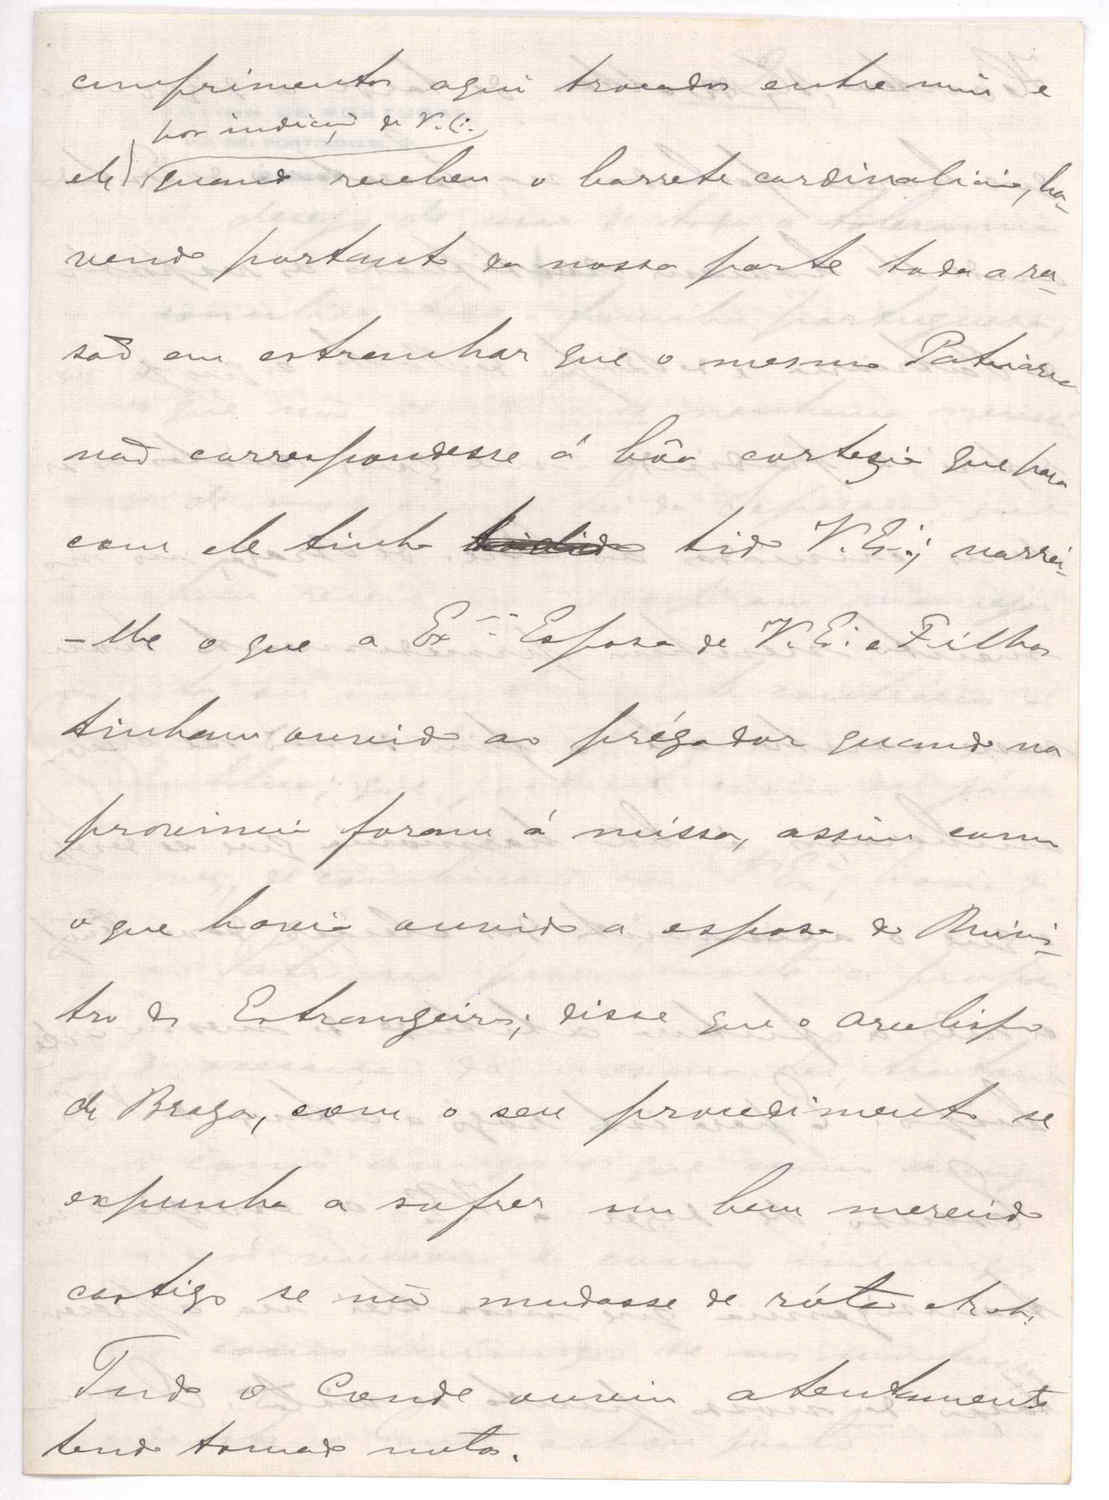 cumprimentos aqui trocados entre mim e
por indicaç̃ de V. E.
ele quando recebeu o barrete cardinalicio, ha-
vendo portanto da nossa parte toda a ra-
saõ em estranhar que o mesmo Patriarca
naõ correspondesse á bôa cortezia que para
com ele tinha tido V. E.; narrei-
-lhe o que a Ex.ma Esposa de V. E. e Filhos
tinham ouvido ao prégador quando na
provincia foram á missa, assim como
o que havia ouvido a esposa do Minis-
tro dos Estrangeiros; disse que o arcebispo
de Braga, com o seu procedimento se
expunha a sofrer um bem merecido
castigo se não mudasse de róta etc. etc.
Tudo o Conde ouviu atentamente
tendo tomado notas.